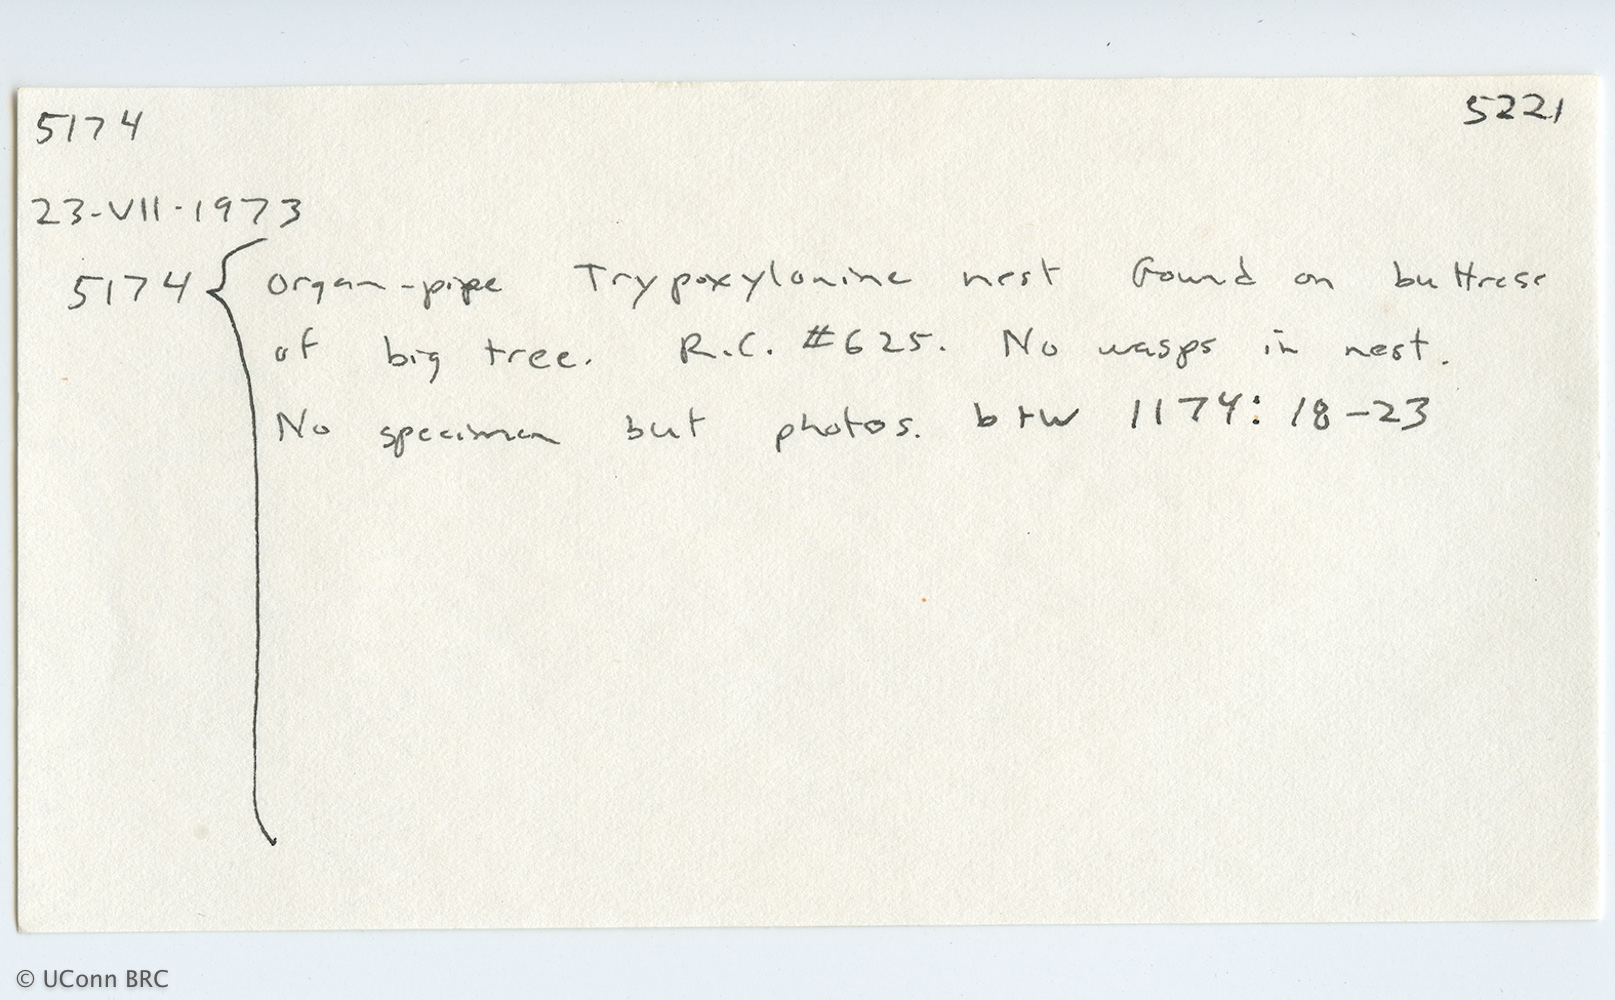 5174 5221
23-VII-1973
5174 { Organ-pipe Trypoxylonine nest found on buttress
of big tree. R.C. #625. No wasps in nest.
No specimen but photos. b+w 1174: 18-23
© UConn BRC